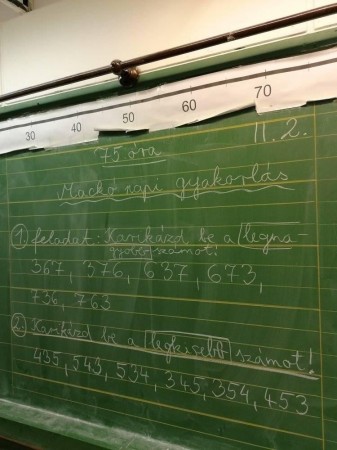 30 40 50 60 70
II. 2.
75 óra
Mackó napi gyakorlás
1. feladat: Karikázd be a legna-
gyobb számot!
367, 376, 637, 673,
736, 763
2. Karikázd be a legkisebb számot!
435, 543, 534, 345, 354, 453